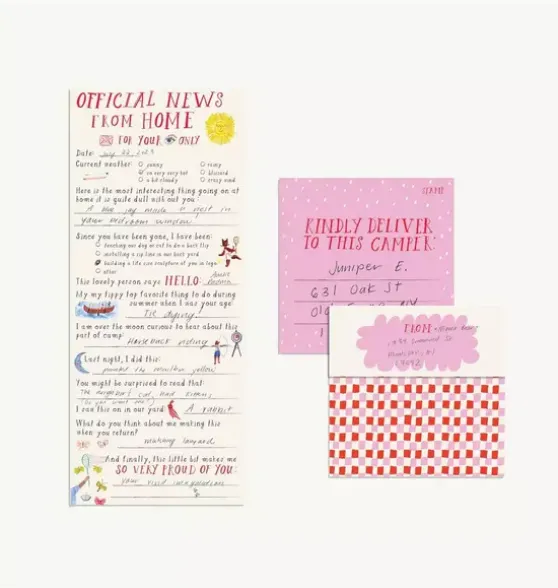 OFFICIAL NEWS
FROM HOME
FOR YOUR ONLY
Date: July 22, 2023
Current weather:
sunny
rainy
very very hot
blizzard
a bit cloudy
crazy wind
Here is the most interesting thing going on at
home it is quite dull with out you:
A blue jay made a nest in
your bedroom window.
Since you have been gone, I have been:
teaching our dog or cat to do a back flip
installing a zip line in our back yard
building a life size sculpture of you in legos
other
This lovely person says HELLO: Aunt
My my tippy top favorite thing to do during
summer when I was your age:
Tie dying!
I am over the moon curious to hear about this
part of camp: Horseback riding
Last night, I did this:
painted the yellow
You might be surprised to read that:
The cat had kittens.
I saw this in our yard: A rabbit
What do you think about me making this
when you return?
lanyard
And finally, this little bit makes me
SO VERY PROUD OF YOU:
your vivid imagination
STAMP
KINDLY DELIVER
TO THIS CAMPER:
Juniper E.
631 Oak St
1
FROM